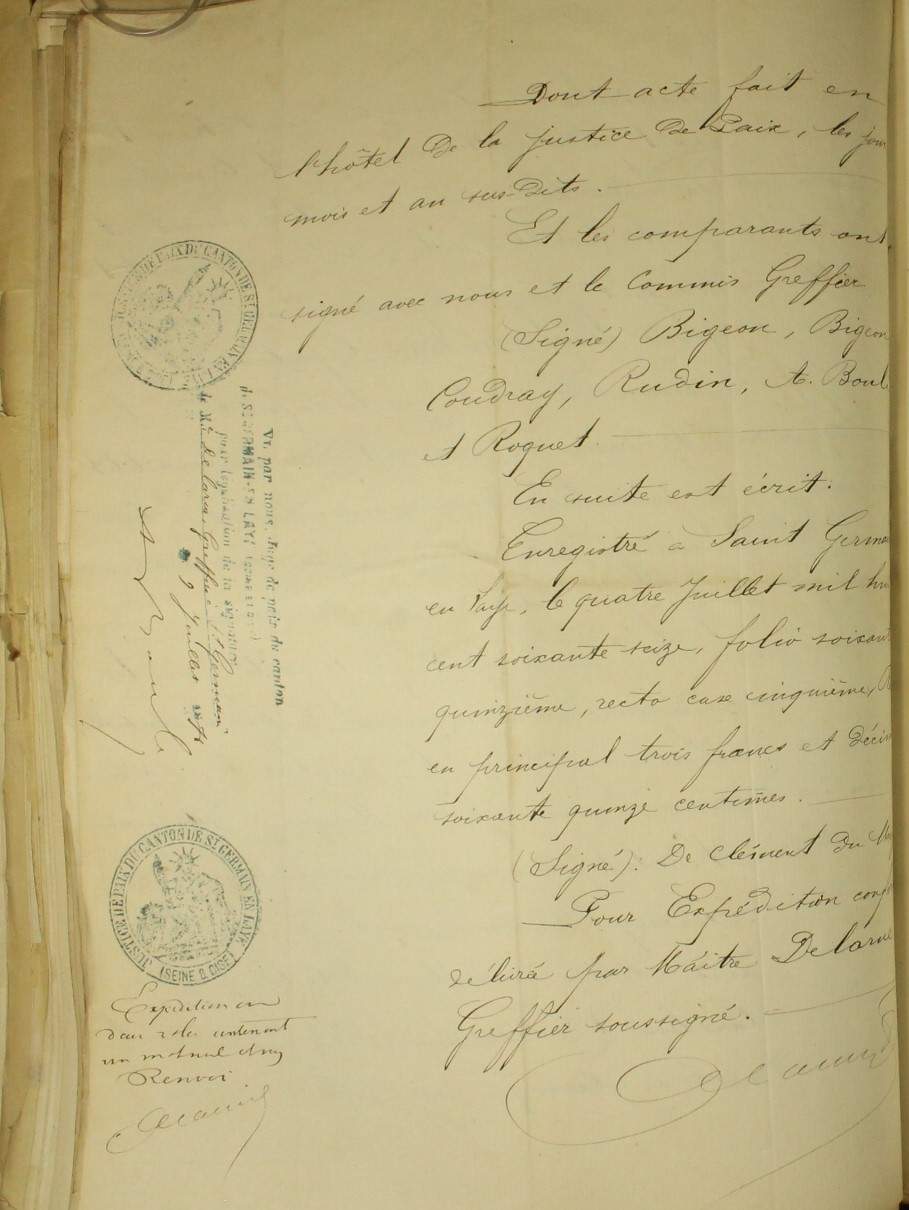 Dont acte fait en
l'hôtel De la justice De Paix, les jour
mois et an sus-Dits.
Et les comparants ont
signé avec nous et le Commis Greffier
(Signé) Bigeon, Bigeon
Coudray, Rudin, A. Boul
et Roquet.
En suite est écrit:
Enregistré à Saint Germa
en Laye, le quatre Juillet mil hu
cent soixante seize, folio soixant
quinzième, recto case cinquième, R
en principal trois francs et décim
soixante quinze centimes.
(Signé): De Clément du
Pour Expédition conf
délivré par Maitre Delarue
Greffier soussigné.
JUSTICE DE PAIX DU CANTON DE ST GERMAIN EN LAYE
Vu par nous, Juge de paix du canton
de ST GERMAIN-EN LAYE
pour légalisation de la signature
de Me Delarue Greffier à St Germain
9 Juillet
JUSTICE DE PAIX DU CANTON DE ST GERMAIN EN LAYE
(SEINE & OISE)
Expédition en
deux rôles contenant
un mot nul
Renvoi